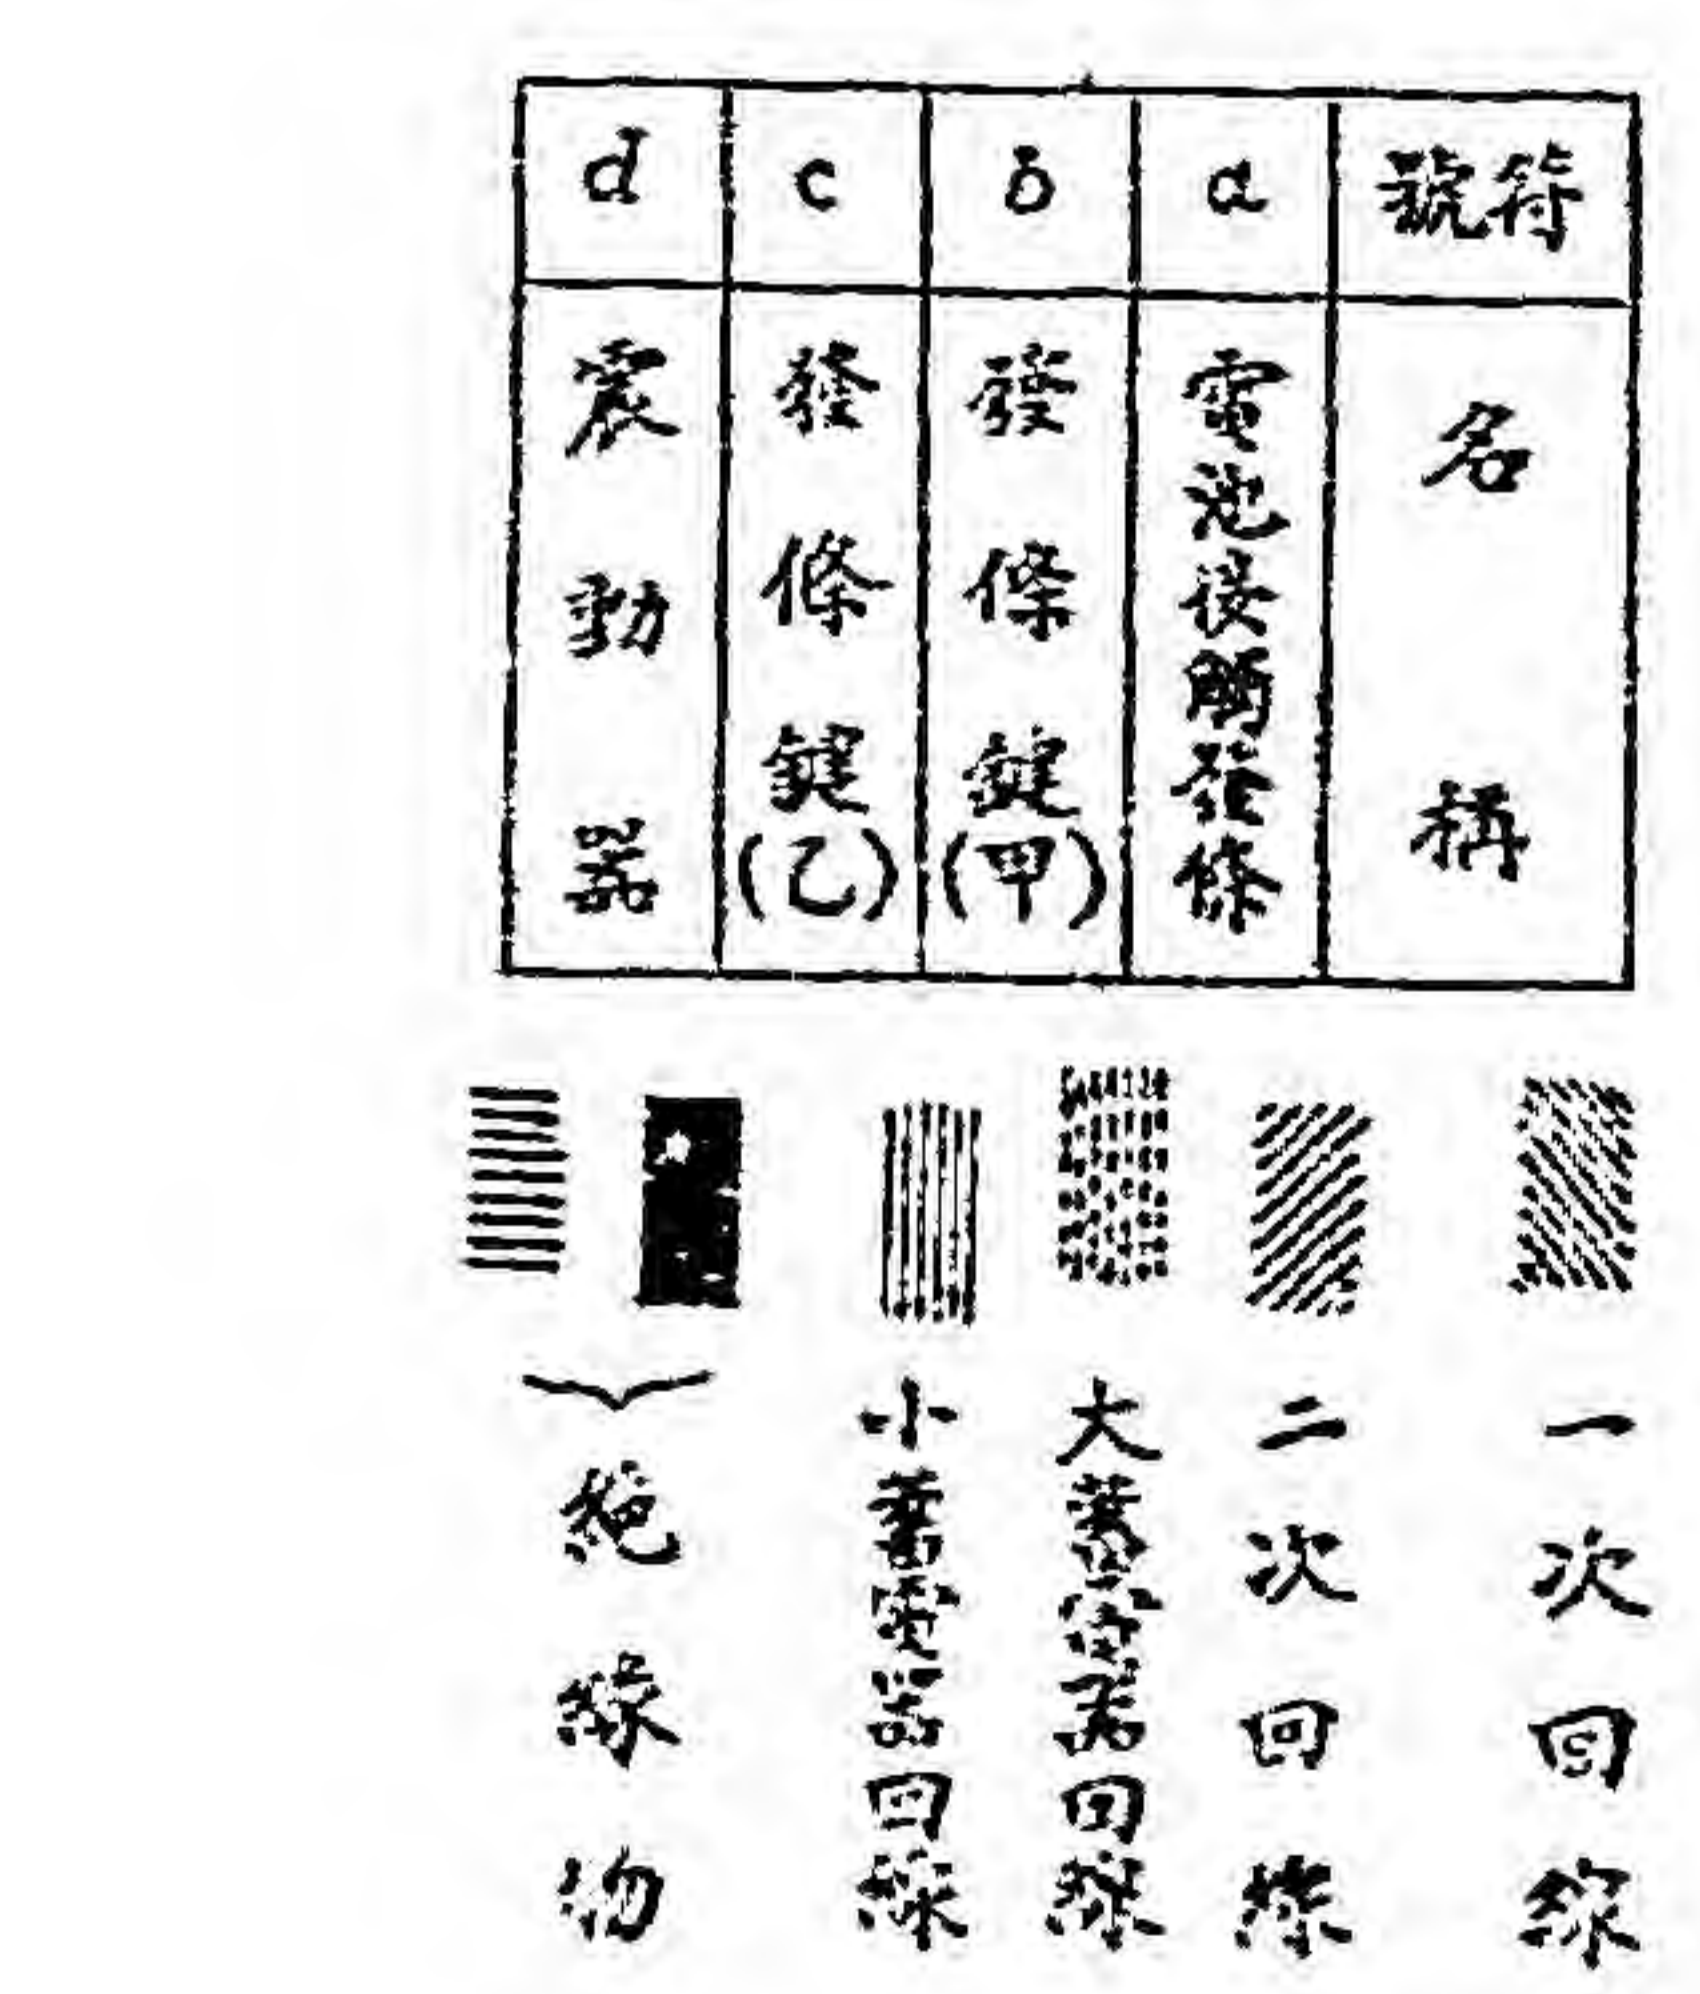 符號 名稱
a 電池接觸發條
b 發條鍵(甲)
c 發條鍵(乙)
d 震動器
一次回線
二次回線
大蓄電器回線
小蓄電器回線
絕緣物